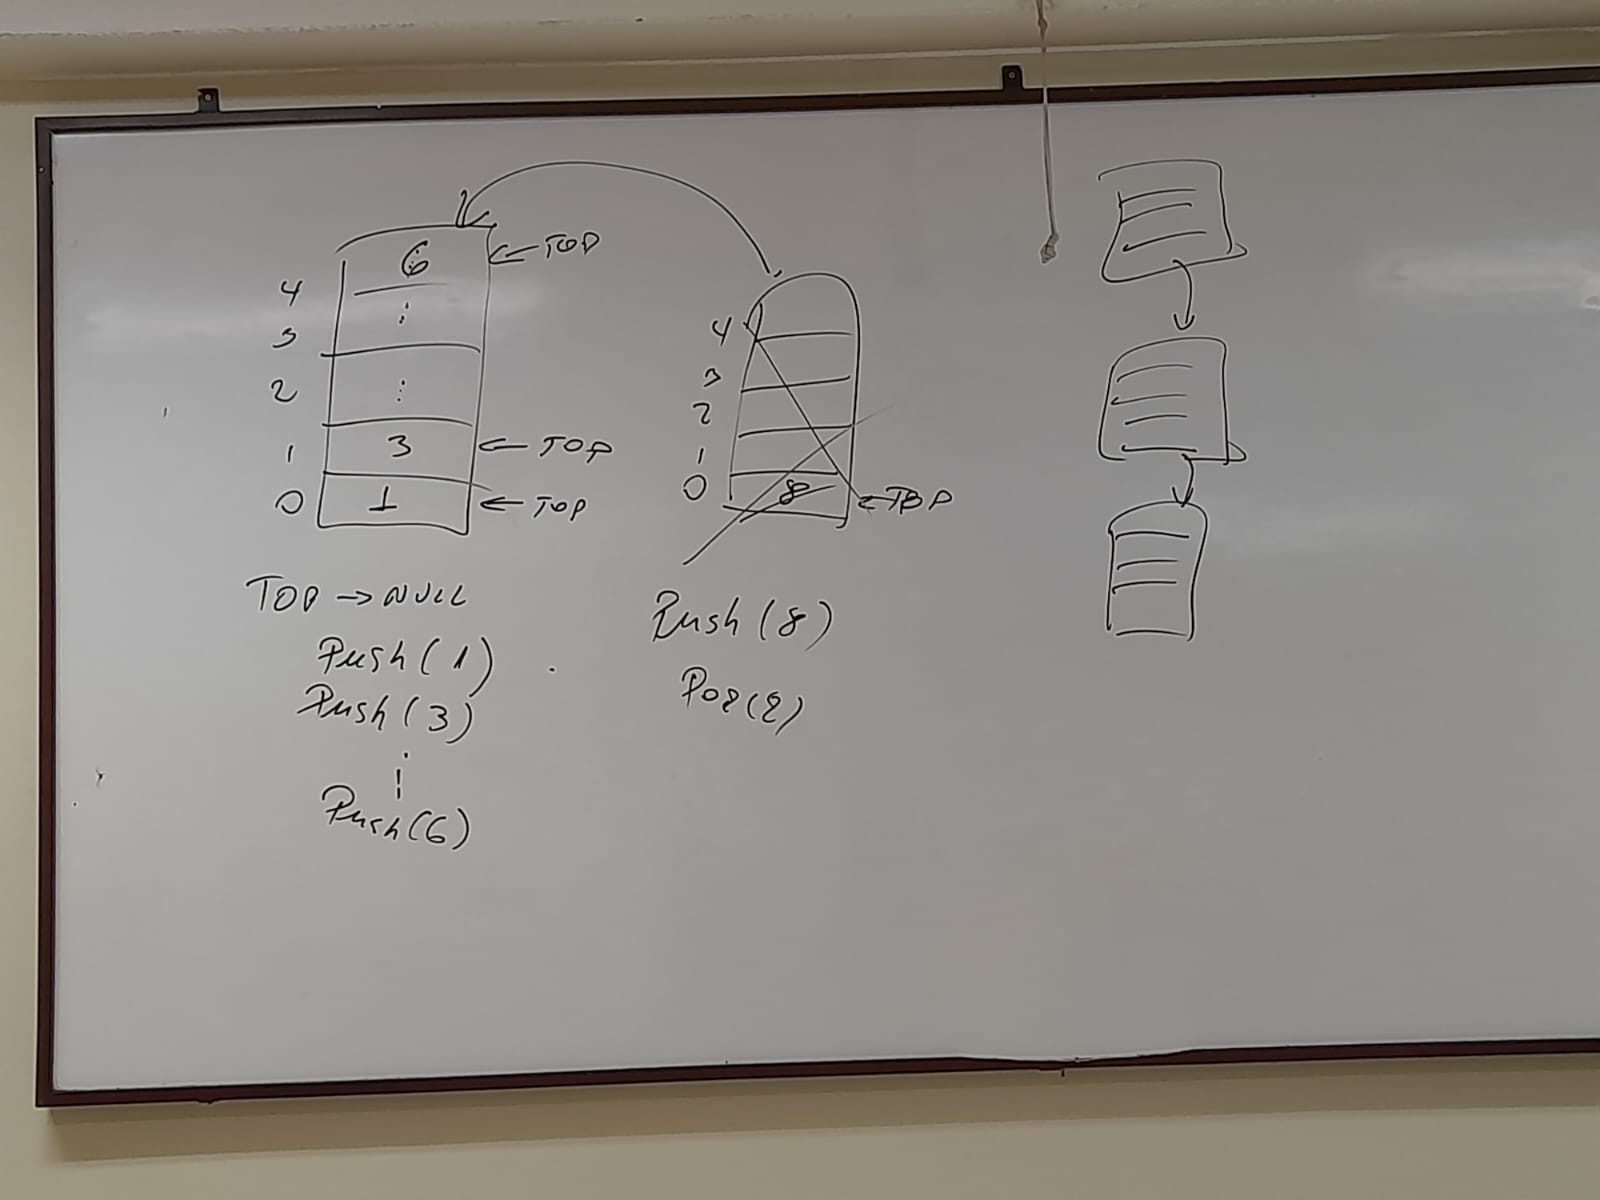 6 ← TOP
4
3
2
1 3 ← TOP
0 1 ← TOP
TOP → NULL
Push (1)
Push (3)
Push (6)
4
3
2
1
0 8 ← TOP
Push (8)
Pop (8)